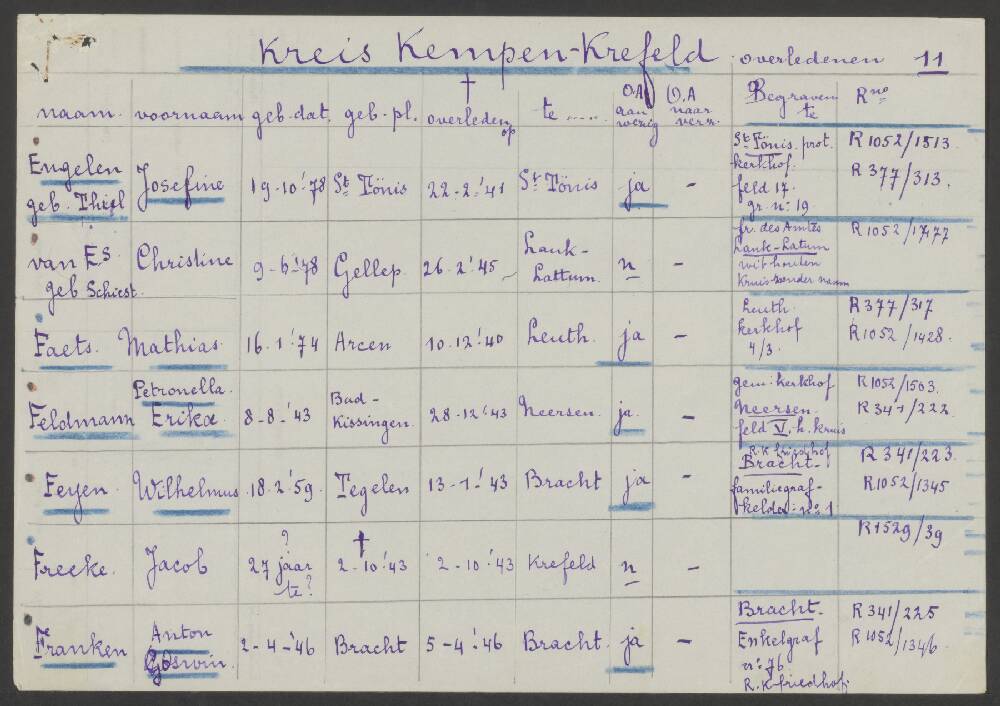 Kreis Kempen-Krefeld overledenen 11
naam. voornaam geb. dat. geb. pl. † overleden op te ..... O.A aan wezig O.A naar verz. Begraven te R nos
Engelen geb. Josefine 19-10-'78 St Tönis 22-2-'41 St Tönis ja -
St. Tönis. prot.
kerkhof.
feld 17.
gr. no 19.
R 1052/1513
R 377/313.
van Es geb Schiest. Christine 9-6-'78 Gellep. 26.2.'45 Lank-Lattum. n -
fr. des Amtes
Lank-Latum
wit houten
Kruis zonder naam
R 1052/1477
Faets. Mathias. 16.1.'74 Arcen 10.12.'40 Leuth. ja -
Leuth.
kerkhof
4/3.
R 377/317
R 1052/1428.
Feldmann Petronella. Erika 8-8-'43 Bad-Kissingen. 28-12-'43 Neersen. ja. -
gem: kerkhof
Neersen.
feld V. h. kruis
R 1052/1503.
R 341/222.
Feyen. Wilhelmus 18.2.'59. Tegelen 13-1-'43 Bracht ja -
R.K friedhof
Bracht-
familiegraf-
kelder: no 1
R 341/223.
R 1052/1345
Frecke. Jacob ? 27 jaar te? † 2-10-'43 2-10-'43 Krefeld n -
R 1529/39
Franken Anton Goswin. 2-4-'46 Bracht 5-4-'46 Bracht. ja -
Bracht.
Enkelgraf
no 76.
R.K friedhof.
R 341/225
R 1052/1346.